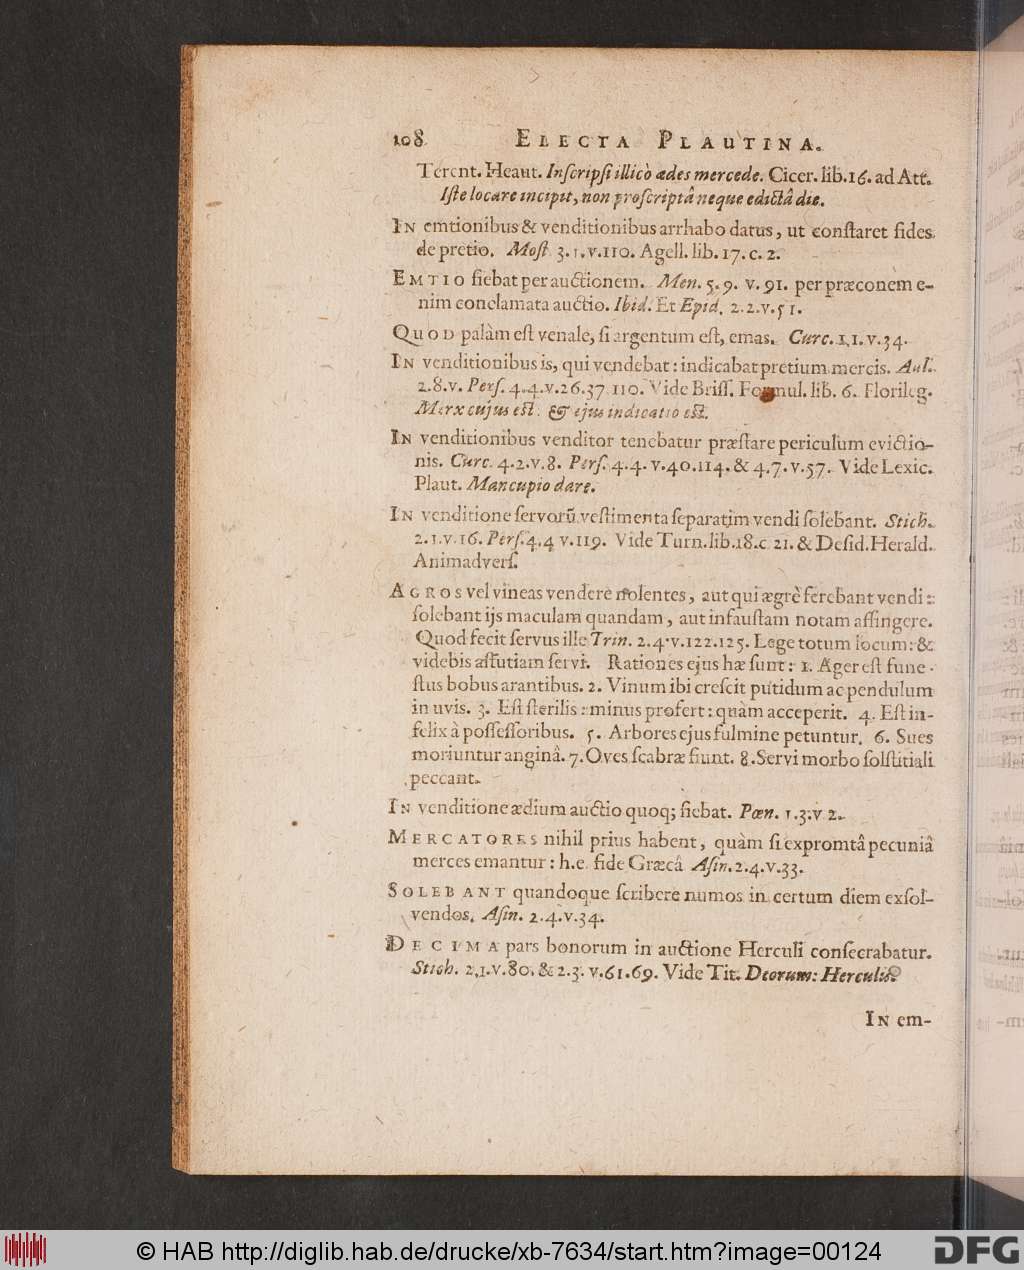 108 ELECTA PLAUTINA.
Terent. Heaut. Inſcripſi illicò ædes mercede. Cicer. lib. 16. ad Att.
Iſte locare incipit, non proſcriptâ neque edictâ die.
IN emtionibus & venditionibus arrhabo datus, ut conſtaret fides
de pretio. Moſt. 3. 1. v. 110. Agell. lib. 17. c. 2.
EMTIO fiebat per auctionem. Men. 5. 9. v. 91. per præconem e-
nim conclamata auctio. Ibid. Et Epid. 2. 2. v. 51.
QUOD palàm eſt venale, ſi argentum eſt, emas. Curc. 1, 1. v. 34.
IN venditionibus is, qui vendebat: indicabat pretium mercis. Aul.
2. 8. v. Perſ. 4. 4. v. 26. 37. 110. Vide Briſſ. Formul. lib. 6. Florileg.
Merx cujus eſt. & ejus indicatio eſt.
IN venditionibus venditor tenebatur præſtare periculum evictio-
nis. Curc. 4. 2. v. 8. Perſ. 4. 4. v. 40. 114. & 4. 7. v. 57. Vide Lexic.
Plaut. Mancupio dare.
IN venditione ſervorũ veſtimenta ſeparatim vendi ſolebant. Stich.
2. 1. v. 16. Perſ. 4. 4 v. 119. Vide Turn. lib. 18. c. 21. & Deſid. Herald.
Animadverſ.
AGROS vel vineas vendere nolentes, aut qui ægrè ferebant vendi:
ſolebant ijs maculam quandam, aut infauſtam notam affingere.
Quod fecit ſervus ille Trin. 2. 4. v. 122. 125. Lege totum locum: &
videbis aſtutiam ſervi. Rationes ejus hæ ſunt: 1. Ager eſt fune-
ſtus bobus arantibus. 2. Vinum ibi creſcit putidum ac pendulum
in uvis. 3. Eſt ſterilis: minus profert: quàm acceperit. 4. Eſt in-
felix à poſſeſſoribus. 5. Arbores ejus fulmine petuntur. 6. Sues
moriuntur anginâ. 7. Oves ſcabræ fiunt. 8. Servi morbo ſolſtitiali
peccant.
IN venditione ædium auctio quoq; fiebat. Pœn. 1. 3. v 2.
MERCATORES nihil prius habent, quàm ſi expromtâ pecuniâ
merces emantur: h. e. fide Græcâ Aſin. 2. 4. v. 33.
SOLEBANT quandoque ſcribere numos in certum diem exſol-
vendos. Aſin. 2. 4. v. 34.
DECIMA pars bonorum in auctione Herculi conſecrabatur.
Stich. 2, 1. v. 80. & 2. 3. v. 61. 69. Vide Tit. Deorum: Herculis.
IN em-
© HAB http://diglib.hab.de/drucke/xb-7634/start.htm?image=00124
DFG